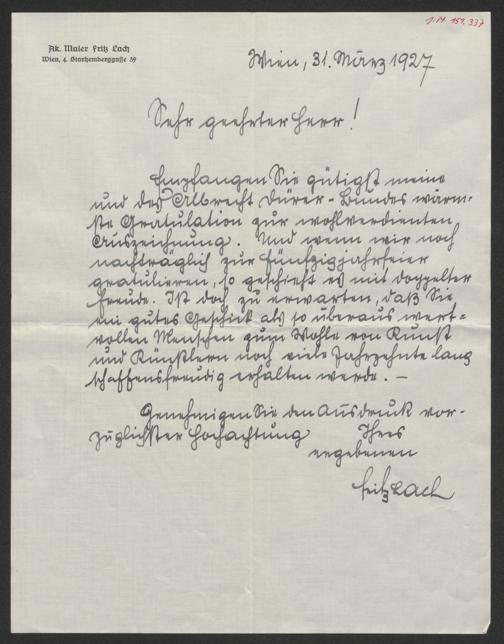 J.N. 151.337
Ak. Maler Fritz Lach
Wien, 4. Starhemberggasse 39
Wien, 31. März 1927
Sehr geehrter Herr!
Empfangen Sie gütigst meine
und des Albrecht Dürer-Bundes wärm-
ste Gratulation zur wohlverdienten
Auszeichnung. Und wenn wir noch
nachträglich zur Fünfzigjahrfeier
gratulieren, so geschieht es mit doppelter
Freude. Ist doch zu erwarten, daß Sie
ein gutes Geschick als so überaus wert=
vollen Menschen zum Wohle von Kunst
und Künstlern noch viele Jahrzehnte lang
schaffensfreudig erhalten werde. –
Genehmigen Sie den Ausdruck vor-
züglichster Hochachtung Ihres
ergebenen
Fritz Lach